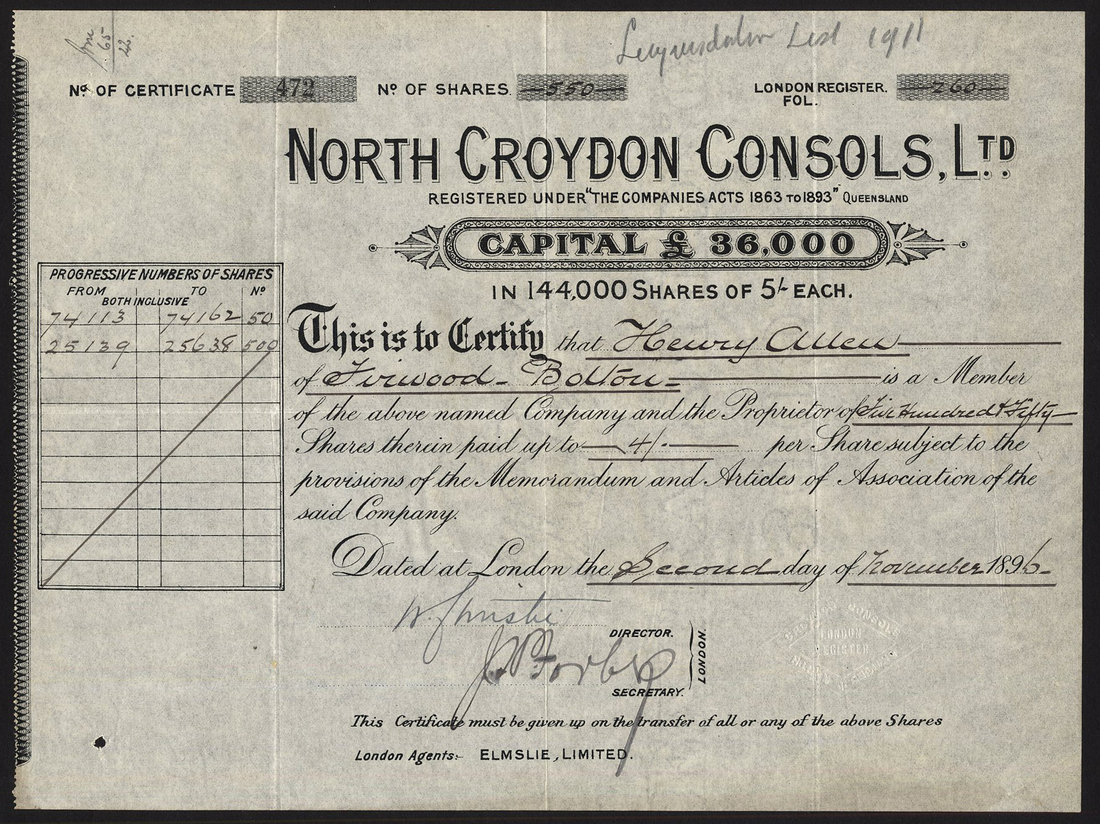 65
1911
Nº OF CERTIFICATE 472 Nº OF SHARES. 550 LONDON REGISTER. 260
FOL.
NORTH CROYDON CONSOLS, LTD
REGISTERED UNDER "THE COMPANIES ACTS 1863 TO 1893" QUEENSLAND
CAPITAL £ 36,000
IN 144,000 SHARES OF 5/- EACH.
PROGRESSIVE NUMBERS OF SHARES
FROM TO Nº
BOTH INCLUSIVE
74113 74162 50
25139 25638 500
This is to Certify that Henry Allen
of Firwood - Bolton is a Member
of the above named Company and the Proprietor of Five Hundred & Fifty
Shares therein paid up to 4/- per Share subject to the
provisions of the Memorandum and Articles of Association of the
said Company.
Dated at London the Second day of November 1896
DIRECTOR.
Forbes
SECRETARY.
LONDON
LONDON
REGISTER
This Certificate must be given up on the transfer of all or any of the above Shares
London Agents:- ELMSLIE, LIMITED.